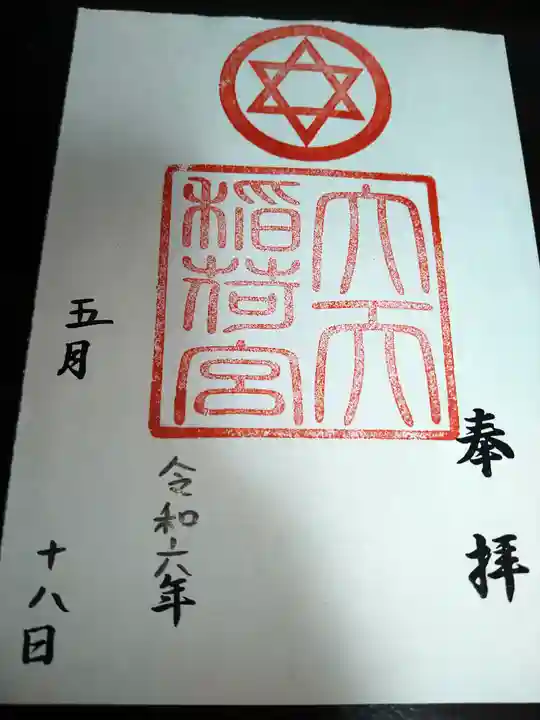 奉拝
六天
稲荷宮
令和六年
五月
十八日